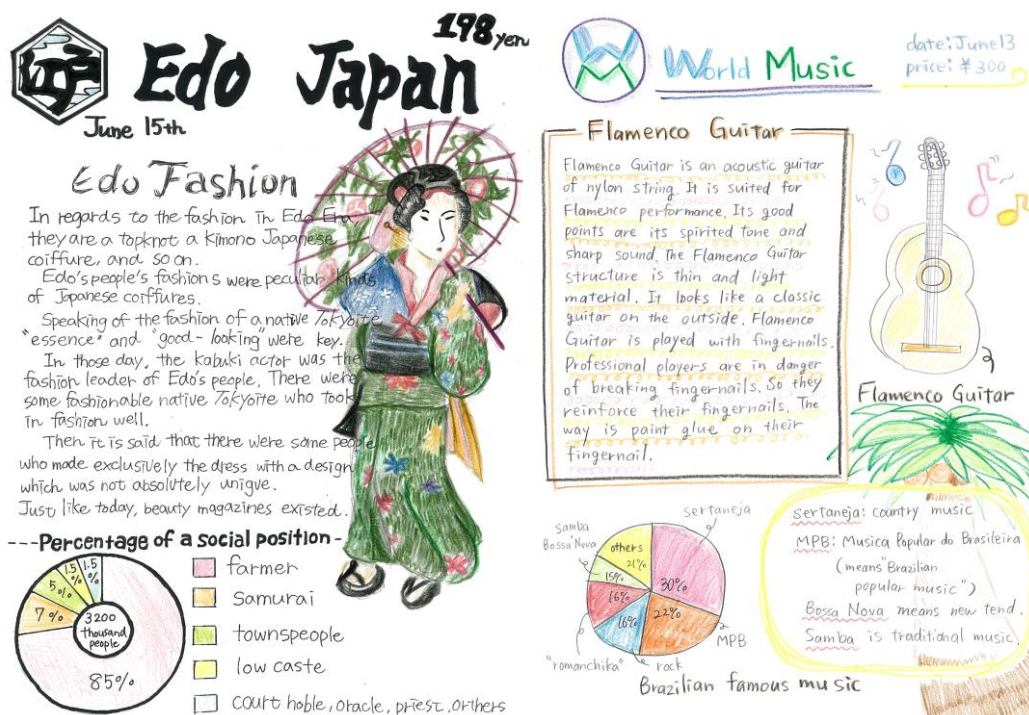 江戸
Edo Japan
198yen
June 15th
Edo Fashion
In regards to the fashion in Edo Era
they are a topknot a Kimono Japanese
coiffure, and so on.
Edo's people's fashions were peculiar kinds
of Japanese coiffures.
Speaking of the fashion of a native Tokyoite
"essence" and "good-looking" were key.
In those day, the kabuki actor was the
fashion leader of Edo's people. There were
some fashionable native Tokyoite who took
in fashion well.
Then it is said that there were some people
who made exclusively the dress with a design
which was not absolutely unique.
Just like today, beauty magazines existed.
---Percentage of a social position-
1.5%
1.5%
5%
7%
3200
thousand
people
85%
farmer
Samurai
townspeople
low caste
court hoble, oracle, priest, orthers
WM
World Music
date: June 13
price: ¥300
Flamenco Guitar
Flamenco Guitar is an acoustic guitar
of nylon string. It is suited for
Flamenco performance. Its good
points are its spirited tone and
sharp sound. The Flamenco Guitar
structure is thin and light
material. It looks like a classic
guitar on the outside. Flamenco
Guitar is played with fingernails.
Professional players are in danger
of breaking fingernails. So they
reinforce their fingernails. The
way is paint glue on their
fingernail.
Flamenco Guitar
Samba
Bossa Nova
others
21%
15%
16%
16%
22%
30%
sertaneja
MPB
rock
"romanchika"
Brazilian famous music
sertaneja: country music
MPB: Musica Popular do Brasileira
(means "Brazilian
popular music")
Bossa Nova means new tend.
Samba is traditional music.